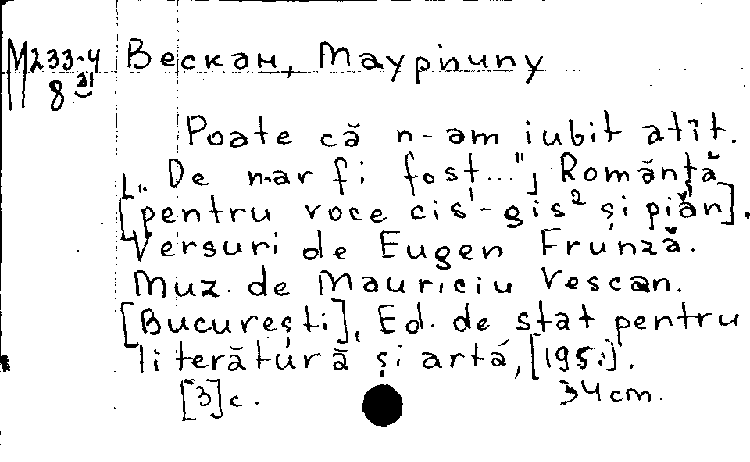 М233-4 Вескан, Маурициу
8
Poate că n-am iubit atît.
[„De n-ar fi fost..."] Romanță
[pentru voce cis¹-gis² și pian].
Versuri de Eugen Frunză.
Muz. de Mauriciu Vescan.
[București], Ed. de stat pentru
literatură și artă, [195.].
[3] c. 34 cm.